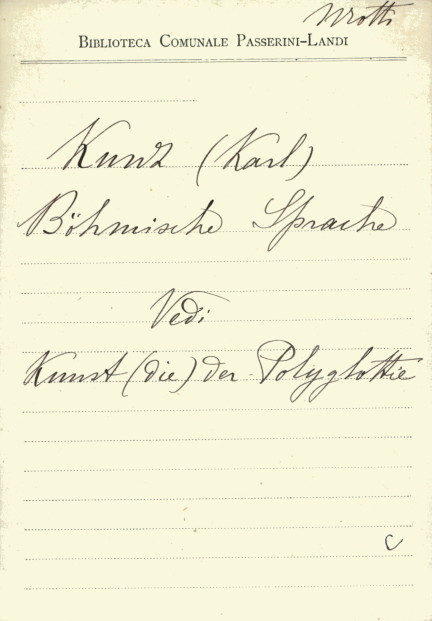 BIBLIOTECA COMUNALE PASSERINI-LANDI
Kunz (Karl)
Böhmische Sprache
Vedi
Kunst (die) der Polyglottie
C